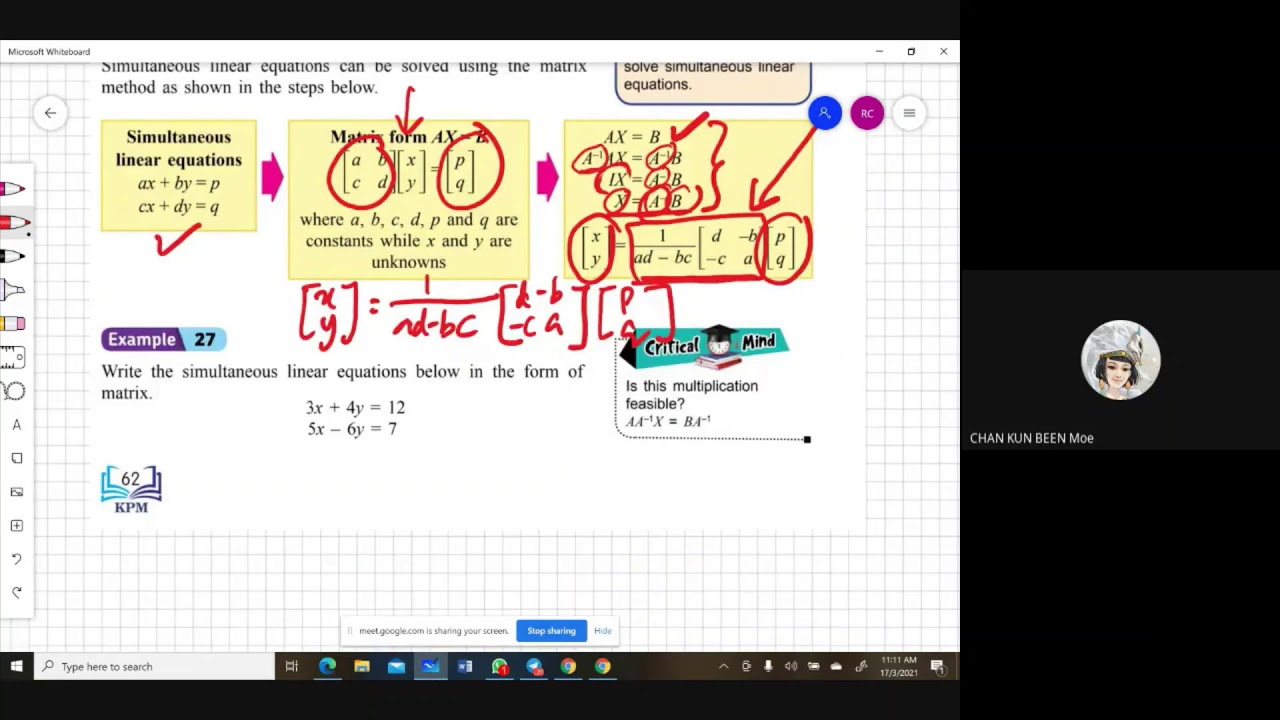 Microsoft Whiteboard
Simultaneous linear equations can be solved using the matrix
method as shown in the steps below.
solve simultaneous linear
equations.
RC
Simultaneous
linear equations
ax + by = p
cx + dy = q
Matrix form AX = B
[a b] [x] = [p]
[c d] [y] [q]
where a, b, c, d, p and q are
constants while x and y are
unknowns
AX = B
A⁻¹AX = A⁻¹B
IX = A⁻¹B
X = A⁻¹B
[x] = 1 [d −b] [p]
[y] ad − bc [−c a] [q]
[x] = 1 [d -b] [p]
[y] ad-bc [-c a] [q]
Example 27
Write the simultaneous linear equations below in the form of
matrix.
3x + 4y = 12
5x − 6y = 7
Critical Mind
Is this multiplication
feasible?
AA⁻¹X = BA⁻¹
62
KPM
CHAN KUN BEEN Moe
meet.google.com is sharing your screen.
Stop sharing
Hide
Type here to search
11:11 AM
17/3/2021